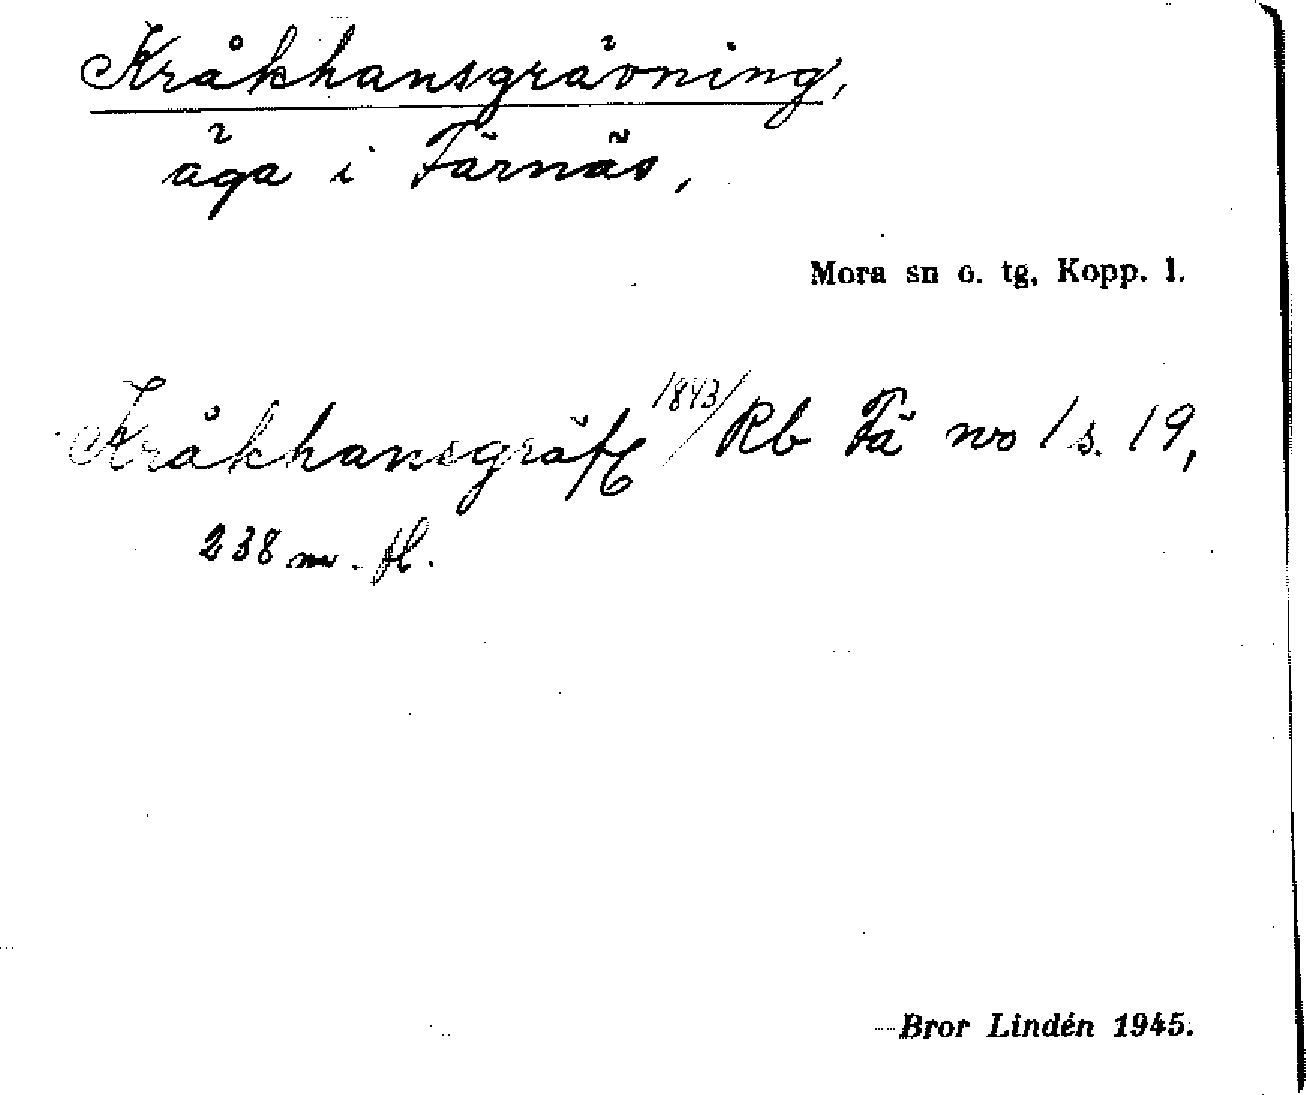 Kråkhansgrävning,
äga i Färnäs,
Mora sn o. tg, Kopp. l.
Kråkhansgräfg 1843/ Rb Fä no 1 s. 19,
238 m. fl.
Bror Lindén 1945.